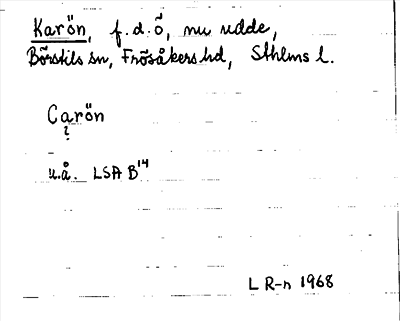 Karön, f.d. ö, nu udde,
Börstils sn, Frösåkers hd, Sthlms l.
Carön
?
u.å. LSA B14
L R-n 1968